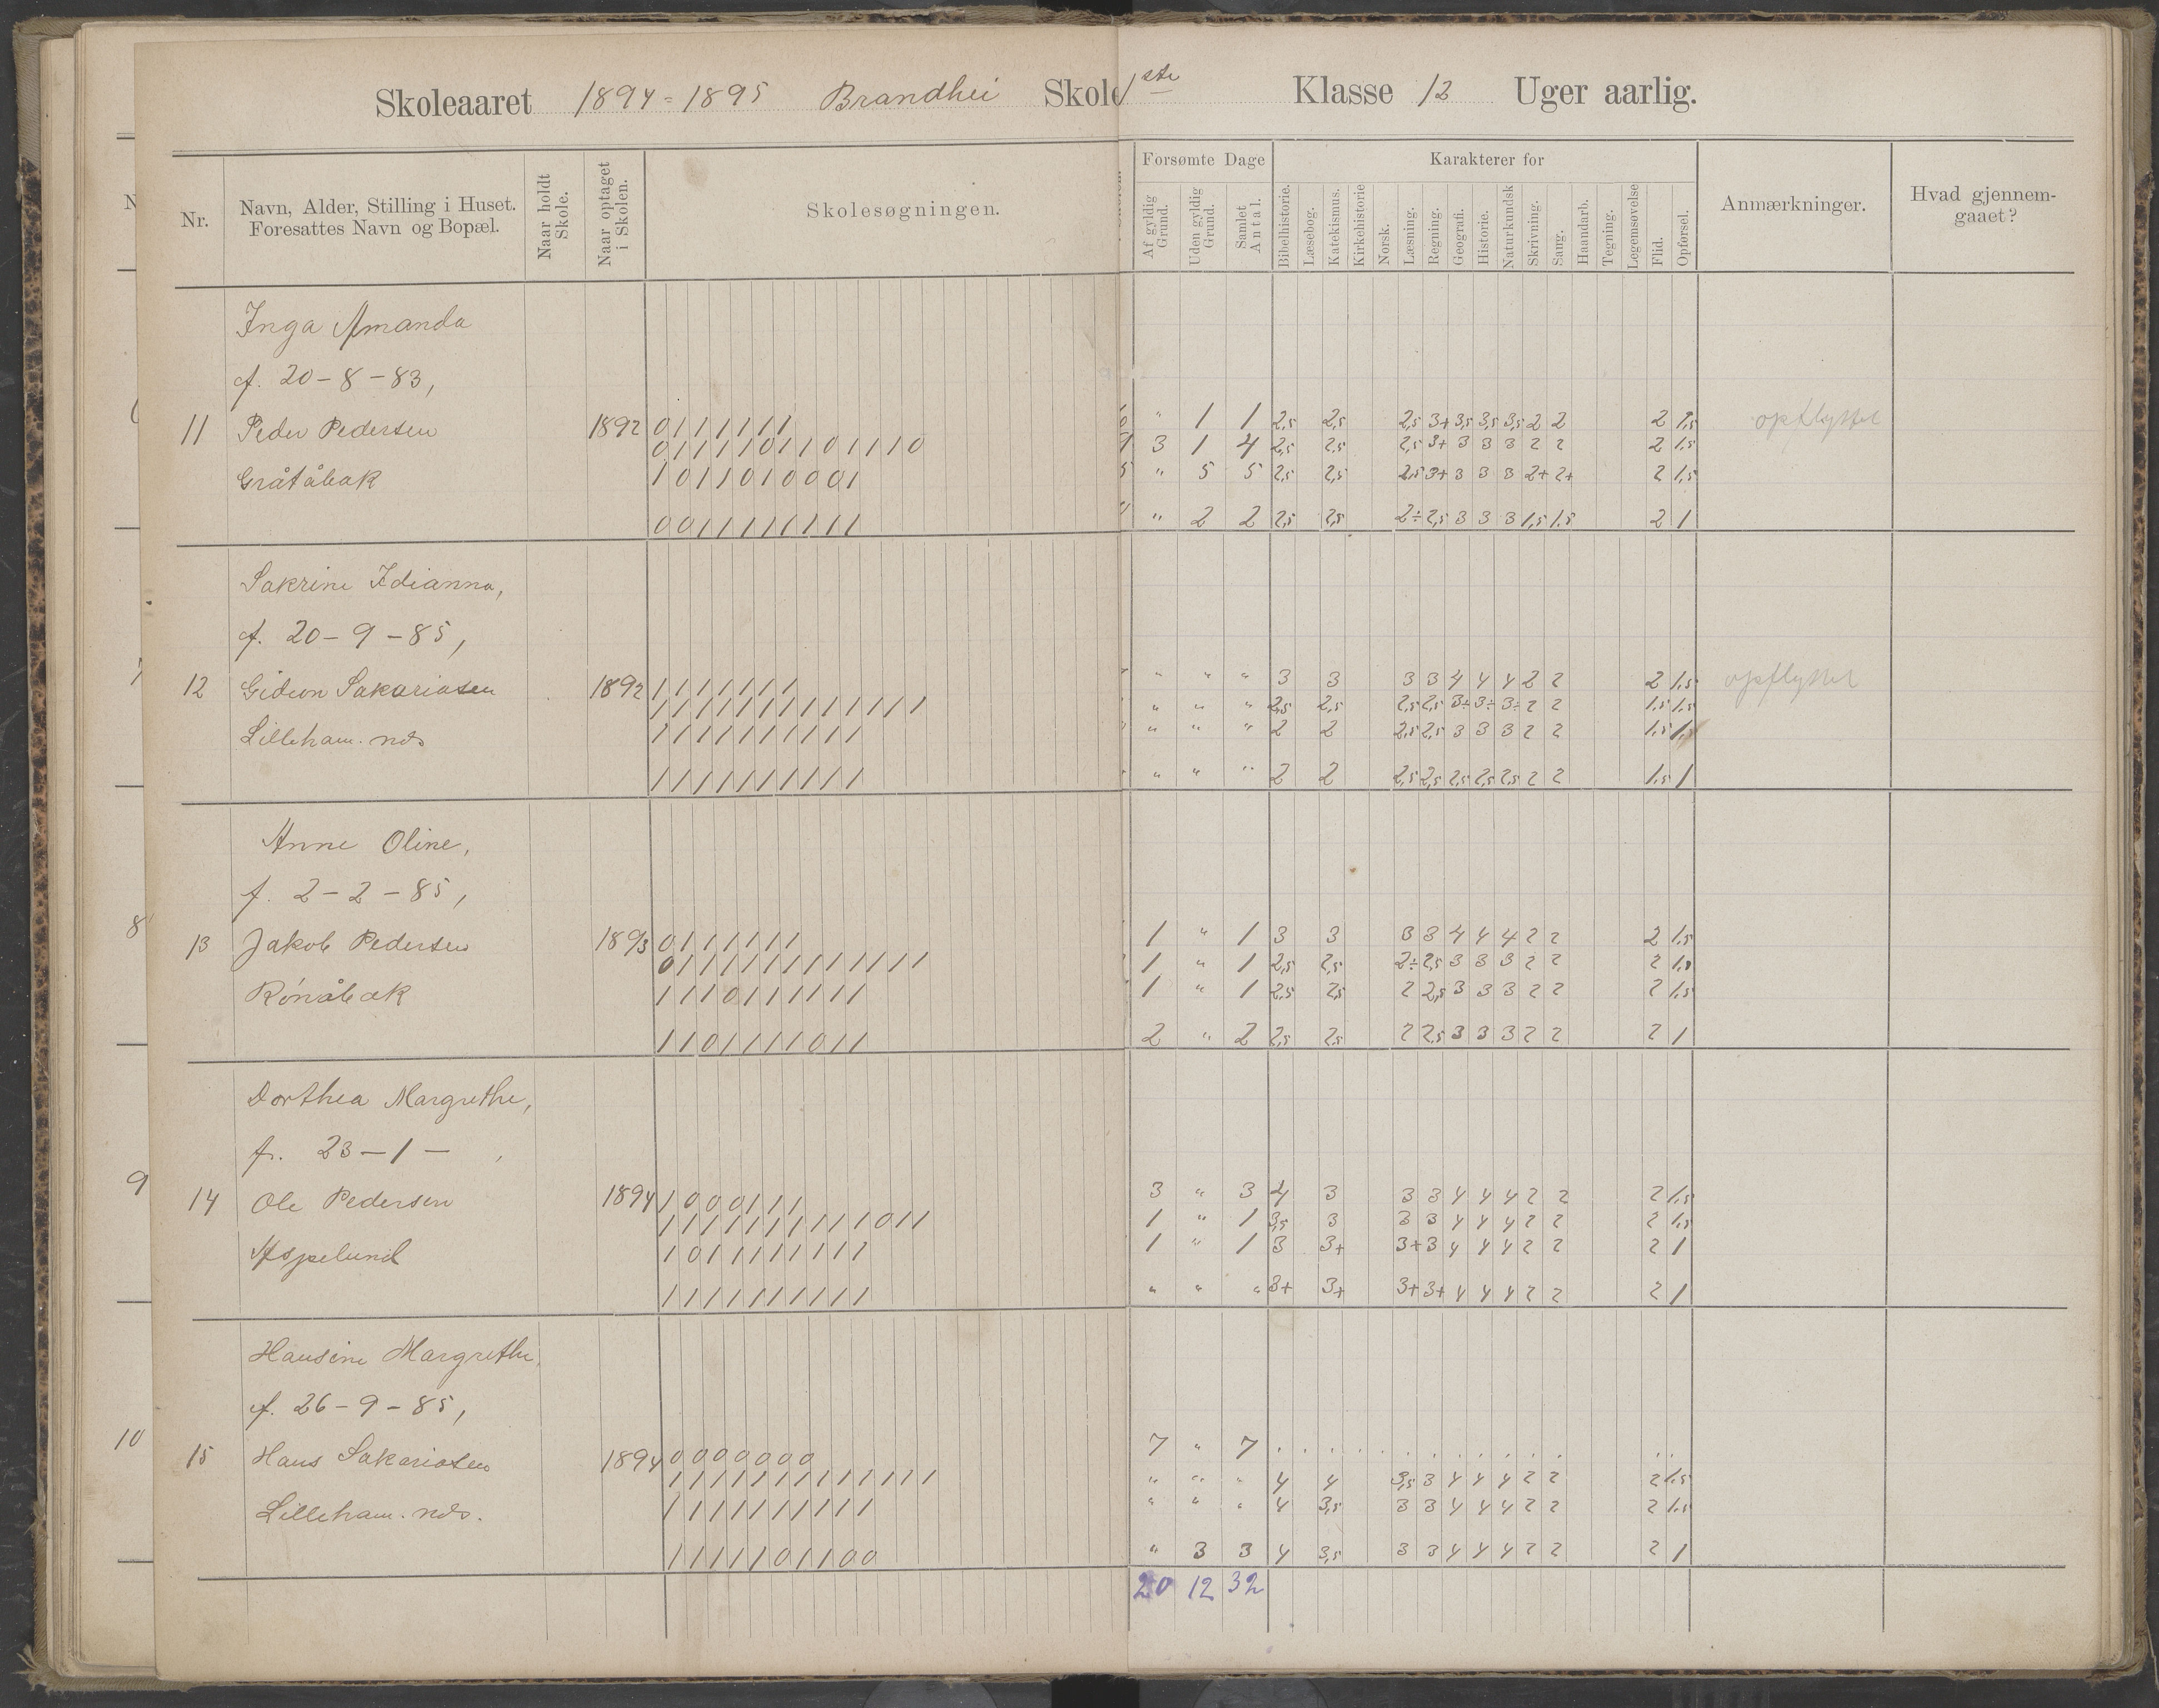 Skoleaaret 1894-1895 Brandhei Skole 1ste Klasse 12 Uger aarlig.
Nr.
Navn, Alder, Stilling i Huset.
Foresattes Navn og Bopæl.
Naar holdt Skole.
Naar optaget i Skolen.
Skolesøgningen.
Forsømte Dage
Af gyldig Grund.
Uden gyldig Grund.
Samlet Antal.
Karakterer for
Bibelhistorie.
Læsebog.
Katekismus.
Kirkehistorie
Norsk.
Læsning.
Regning.
Geografi.
Historie.
Naturkundsk
Skrivning.
Sang.
Haandarb.
Tegning.
Legemsøvelse
Flid.
Opførsel.
Anmærkninger.
Hvad gjennem-
gaaet?
Inga Amanda
f. 20-8-83,
11 Peder Pedersen 1892 0111111 " 1 1 2,5 2,5 2,5 3+ 3,5 3,5 3,5 2 2 2 1,5 opflyttet
0111101101110 3 1 4 2,5 2,5 2,5 3+ 3 3 3 2 2 2 1,5
Gråtåbak 1011010001 " 5 5 2,5 2,5 2,5 3+ 3 3 3 2+ 2+ 2 1,5
0011111111 " 2 2 2,5 2,5 2÷ 2,5 3 3 3 1,5 1,5 2 1
Sakrine Idianna,
f. 20-9-85,
12 Gideon Sakariasen 1892 1111111 " " " 3 3 3 3 4 4 4 2 2 2 1,5 opflyttet
1111111111111 " " " 2,5 2,5 2,5 2,5 3÷ 3÷ 3÷ 2 2 1,5 1,5
Lilleham. nds 1111111111 " " " 2 2 2,5 2,5 3 3 3 2 2 1,5 1,5
1111111111 " " " 2 2 2,5 2,5 2,5 2,5 2,5 2 2 1,5 1
Anne Oline,
f. 2-2-85,
13 Jakob Pedersen 1893 0111111 1 " 1 3 3 3 3 4 4 4 2 2 2 1,5
0111111111111 1 " 1 2,5 2,5 2÷ 2,5 3 3 3 2 2 2 1,5
Rönåbak 1110111111 1 " 1 2,5 2,5 2 2,5 3 3 3 2 2 2 1,5
1101111011 2 " 2 2,5 2,5 2 2,5 3 3 3 2 2 2 1
Dorthea Margrethe,
f. 23-1- ,
14 Ole Pedersen 1894 1000111 3 " 3 4 3 3 3 4 4 4 2 2 2 1,5
1111111111011 1 " 1 3,5 3 3 3 4 4 4 2 2 2 1,5
Aspelund 1011111111 1 " 1 3 3+ 3+ 3 4 4 4 2 2 2 1
1111111111 " " " 3+ 3+ 3+ 3+ 4 4 4 2 2 2 1
Hansine Margrethe,
f. 26-9-85,
15 Hans Sakariasen 1894 0000000 7 " 7 . . . . . . . . . . . . . .
1111111111111 " " " 4 4 3,5 3 4 4 4 2 2 2 1,5
Lilleham. nds. 1111111111 " " " 4 3,5 3 3 4 4 4 2 2 2 1,5
1111101100 " 3 3 4 3,5 3 3 4 4 4 2 2 2 1
20 12 32
8
9
10